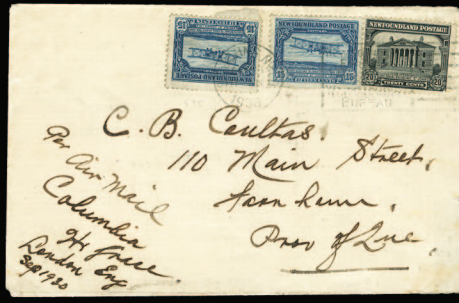 NEWFOUNDLAND POSTAGE
15 15
NEWFOUNDLAND POSTAGE
15 15
NEWFOUNDLAND POSTAGE
20 20
TWENTY CENTS
C. B. Coultas.
110 Main Street,
Farnham,
Prov of Que
Per Air Mail
Columbia
Hr Grace
London Eng
Sep 1930